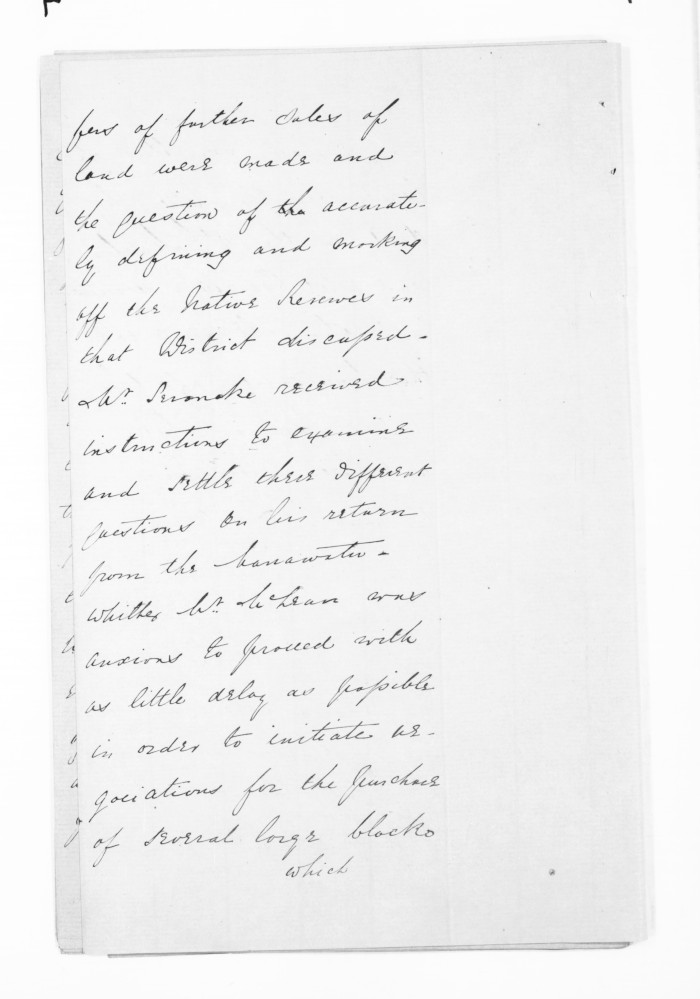 fers of further sales of
land were made and
the question of the accurate-
ly defining and marking
off the Native Reserves in
that District discussed -
Mr. Searancke received
instructions to examine
and settle these different
questions on his return
from the Manawatu -
whither Mr. McLean was
anxious to proceed with
as little delay as possible
in order to initiate ne-
gociations for the purchase
of several large blocks
which